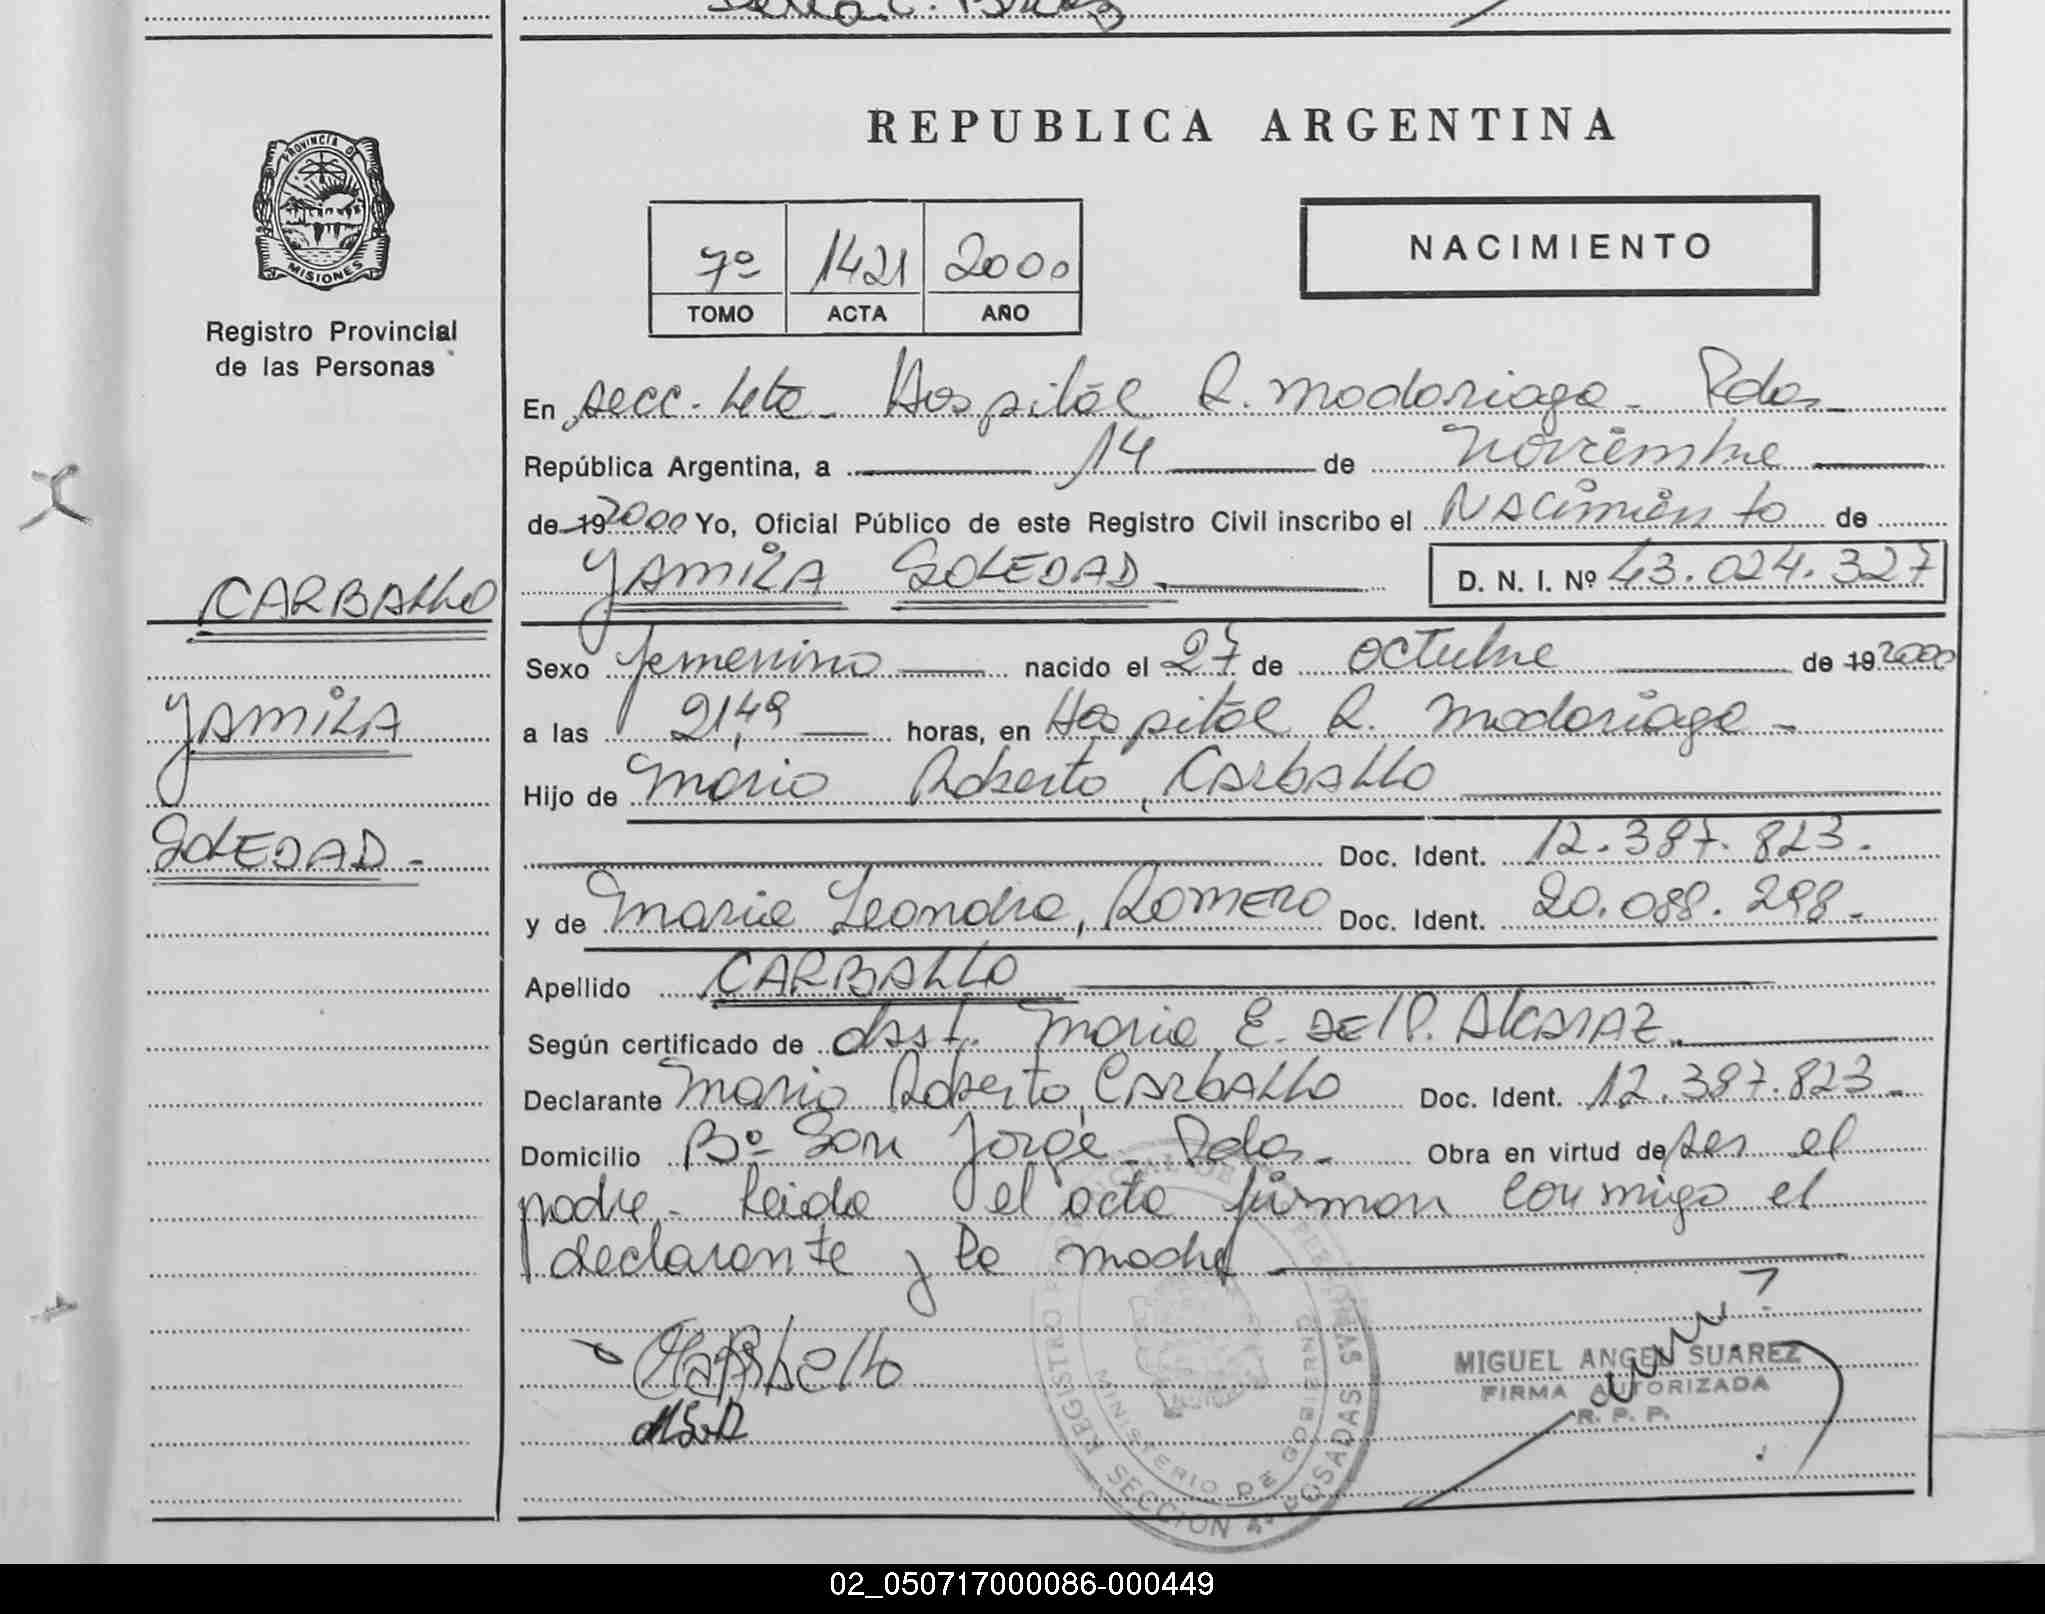 PROVINCIA DE
MISIONES
Registro Provincial
de las Personas
CARBALLO
YAMILA
SOLEDAD.-
REPUBLICA ARGENTINA
7º 1421 2000
TOMO ACTA AÑO
NACIMIENTO
En secc. 4ta - Hospital R. Madariaga - Pdas -
República Argentina, a 14 de noviembre
de 19 2000 Yo, Oficial Público de este Registro Civil inscribo el Nacimiento de
YAMILA SOLEDAD. D. N. I. Nº 43.024.327
Sexo femenino nacido el 27 de octubre de 19 2000
a las 21,49 horas, en Hospital R. Madariaga -
Hijo de Mario Roberto, CARBALLO
Doc. Ident. 12.387.823.
y de Maria Leandra, ROMERO Doc. Ident. 20.088.298.-
Apellido CARBALLO
Según certificado de obst. Maria E. DEL P. ALCARAZ.
Declarante Mario Roberto, CARBALLO Doc. Ident. 12.387.823.-
Domicilio Bº San Jorge - Pdas. - Obra en virtud de ser el
padre.- Leida el acta firman conmigo el
declarante y la madre
MIGUEL ANGEL SUAREZ
FIRMA AUTORIZADA
R. P. P.
MINISTERIO DE GOBIERNO
SECCION 4ª POSADAS
02_050717000086-000449